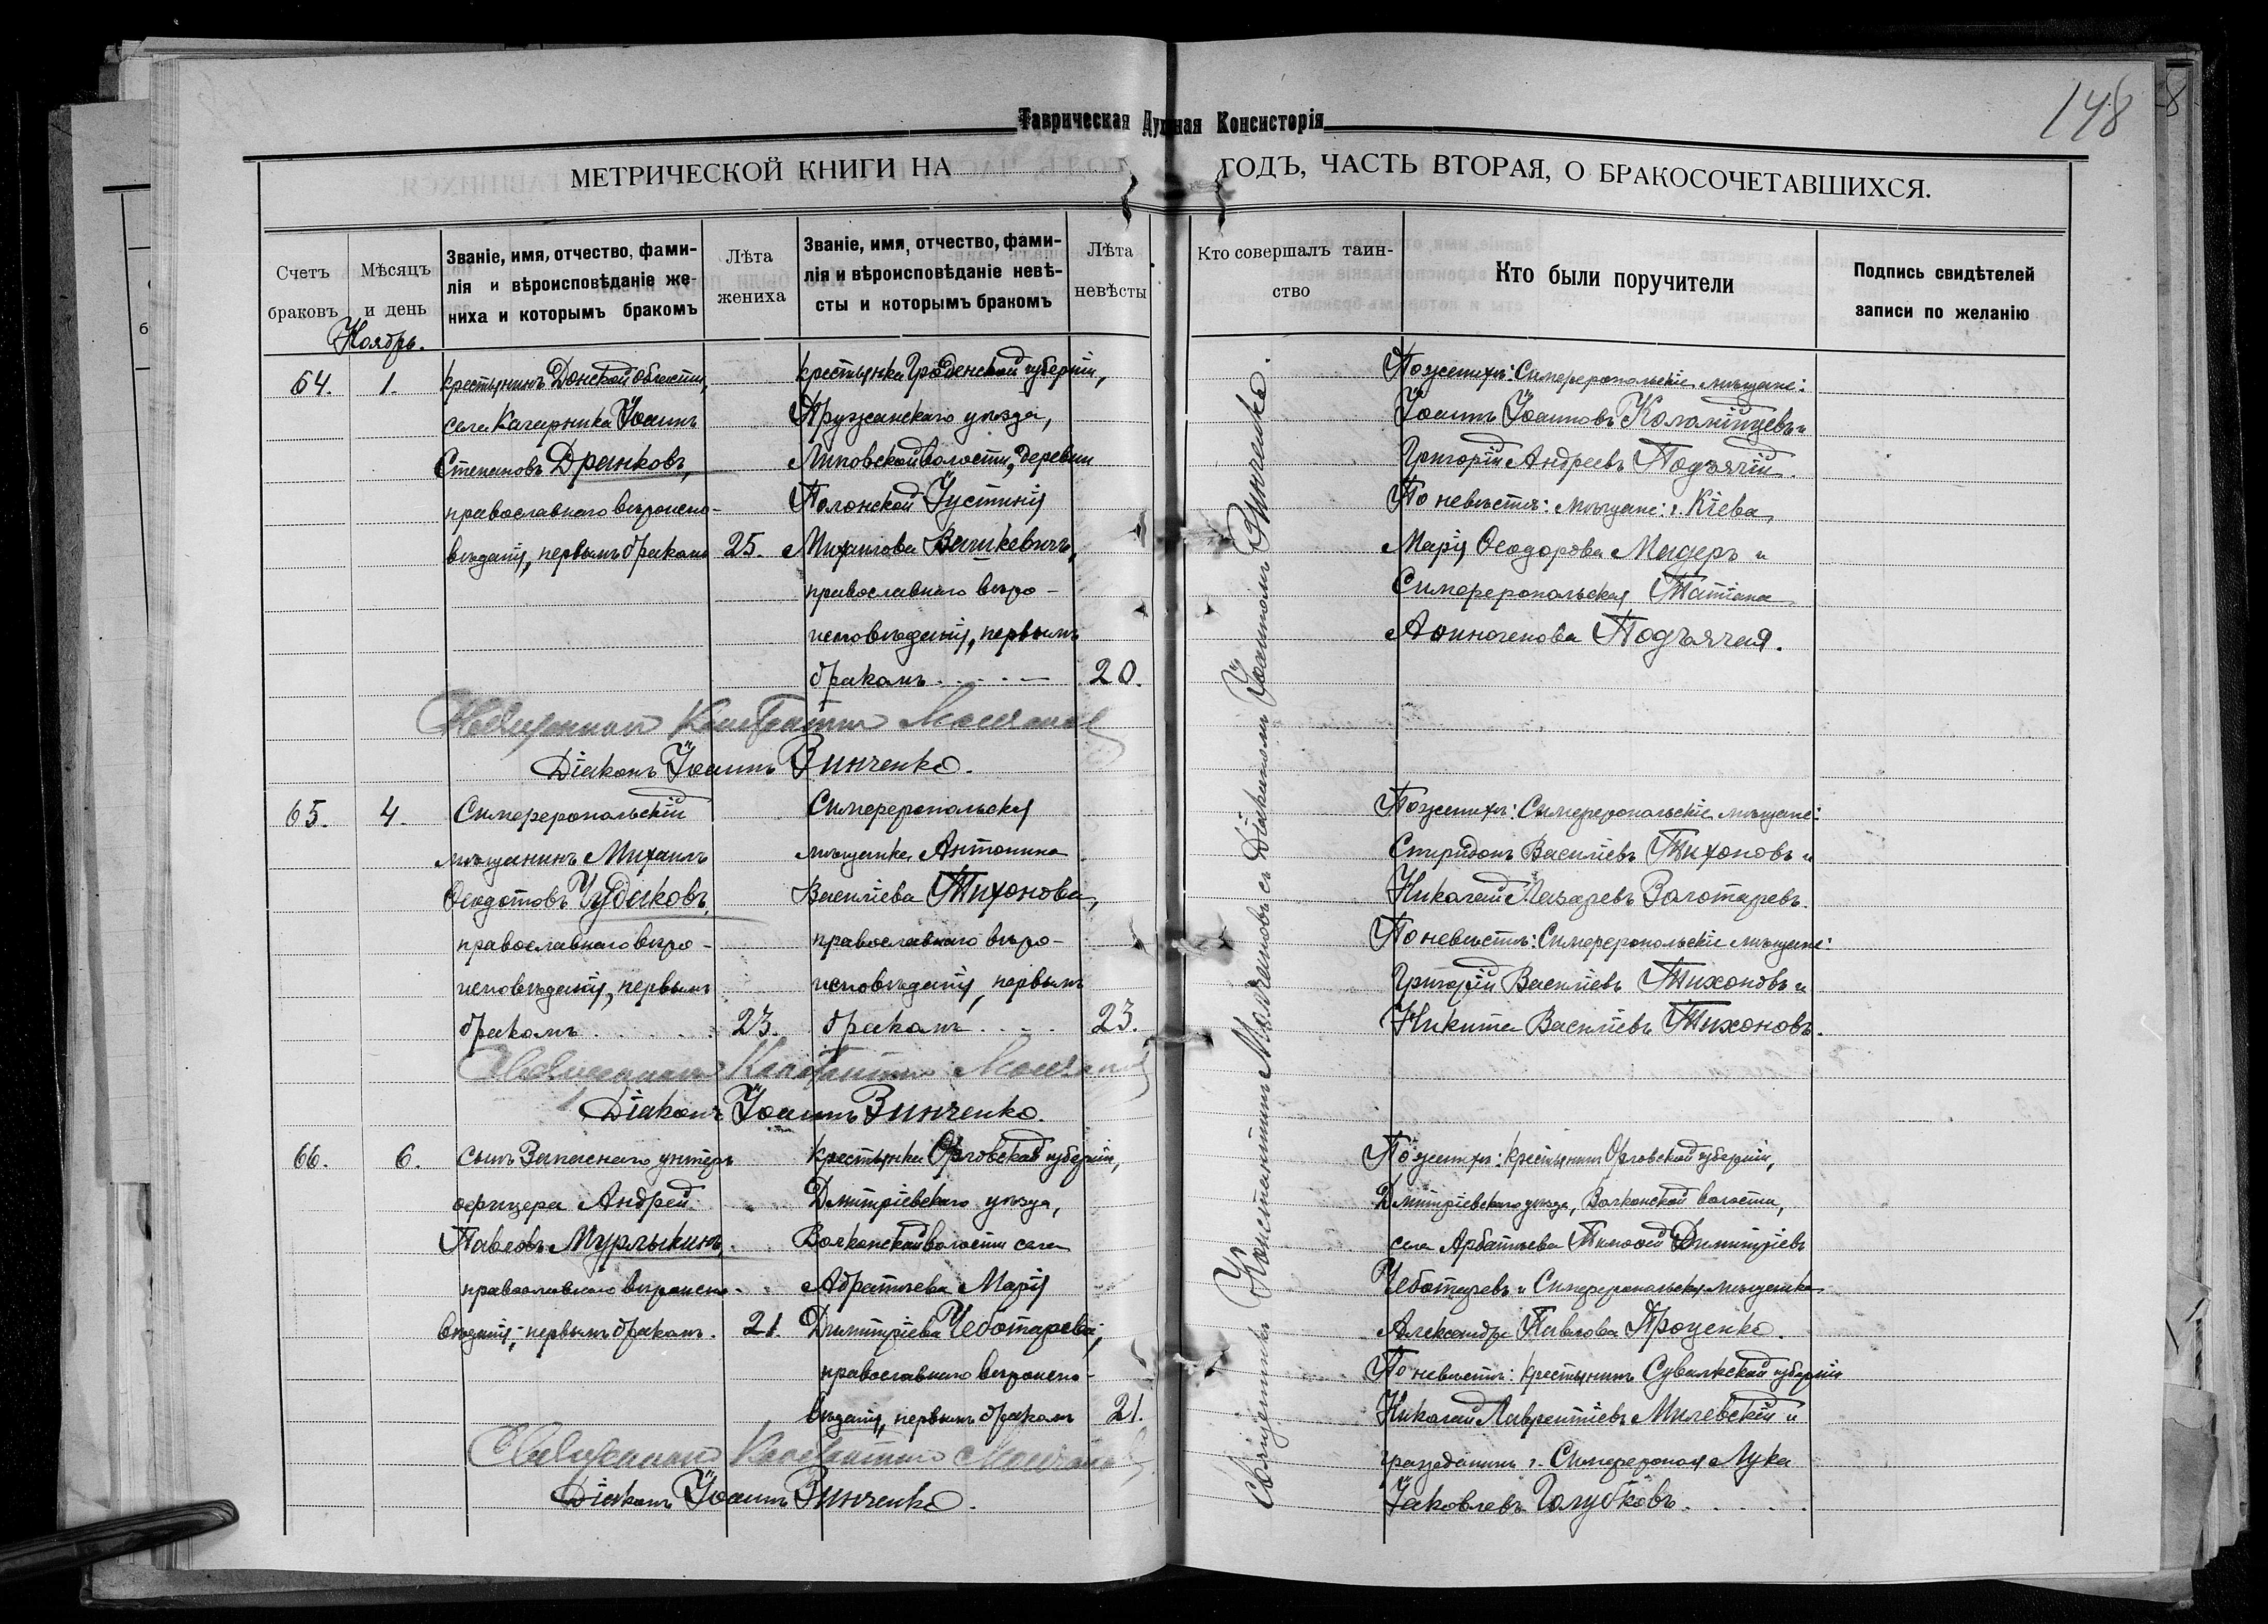 148
Таврическая Духовная Консисторія
МЕТРИЧЕСКОЙ КНИГИ НА ГОДЪ, ЧАСТЬ ВТОРАЯ, О БРАКОСОЧЕТАВШИХСЯ.
Счетъ
браковъ
Мѣсяцъ
и день
Званіе, имя, отчество, фами-
лія и вѣроисповѣданіе же-
ниха и которымъ бракомъ
Лѣта
жениха
Званіе, имя, отчество, фами-
лія и вѣроисповѣданіе невѣ-
сты и которымъ бракомъ
Лѣта
невѣсты
Кто совершалъ таин-
ство
Кто были поручители
Подпись свидѣтелей
записи по желанію
Ноябрь.
64.
1.
крестьянинъ Донской области,
села Качарника Іоаннъ
Степановъ Дранковъ,
православнаго вѣроиспо-
вѣданія, первымъ бракомъ
25.
крестьянка Гродненской губерніи,
Пружанскаго уѣзда,
Линовской волости, деревни
Полонской Іустинія
Михаилова Вашкевичъ,
православнаго вѣро-
исповѣданія, первымъ
бракомъ
20.
По женихѣ: Симферопольскіе мѣщане:
Іоаннъ Іоанновъ Коломійцевъ и
Григорій Андреевъ Подъячій.
По невѣстѣ: мѣщане: г. Кіева,
Марія Ѳеодорова Мадеръ и
Симферопольская Татіана
Аѳиногенова Подъячая.
Священникъ Константинъ Молчановъ
Діаконъ Іоаннъ Зинченко.
65.
4.
Симферопольскій
мѣщанинъ Михаилъ
Ѳеодотовъ Чудаковъ,
православнаго вѣро-
исповѣданія, первымъ
бракомъ
23.
Симферопольская
мѣщанка Антонина
Василіева Тихонова,
православнаго вѣро-
исповѣданія, первымъ
бракомъ
23.
По женихѣ: Симферопольскіе мѣщане:
Спиридонъ Василіевъ Тихоновъ и
Николай Лазаревъ Золотаревъ.
По невѣстѣ: Симферопольскіе мѣщане:
Григорій Василіевъ Тихоновъ и
Никита Василіевъ Тихоновъ.
Священникъ Константинъ Молчановъ
Діаконъ Іоаннъ Зинченко.
66.
6.
сынъ Запаснаго унтеръ
офицера Андрей
Павловъ Мурлыкинъ,
православнаго вѣроиспо-
вѣданія, первымъ бракомъ.
21.
крестьянка Орловской губерніи,
Дмитріевскаго уѣзда,
Волконской волости села
Абратѣева Марія
Димитріева Чеботарева,
православнаго вѣроиспо-
вѣданія, первымъ бракомъ
21.
По женихѣ: крестьянинъ Орловской губерніи,
Дмитріевскаго уѣзда, Волконской волости,
села Арбатѣева Тимоѳей Димитріевъ
Чеботаревъ и Симферопольская мѣщанка
Александра Павлова Проценко.
По невѣстѣ: крестьянинъ Сувалкской губерніи
Николай Лаврентіевъ Милевскій и
гражданинъ г. Симферополя Лука
Іаковлевъ Голубковъ.
Священникъ Константинъ Молчановъ
Діаконъ Іоаннъ Зинченко.
Священникъ Константинъ Молчановъ съ Діакономъ Іоанномъ Зинченко.